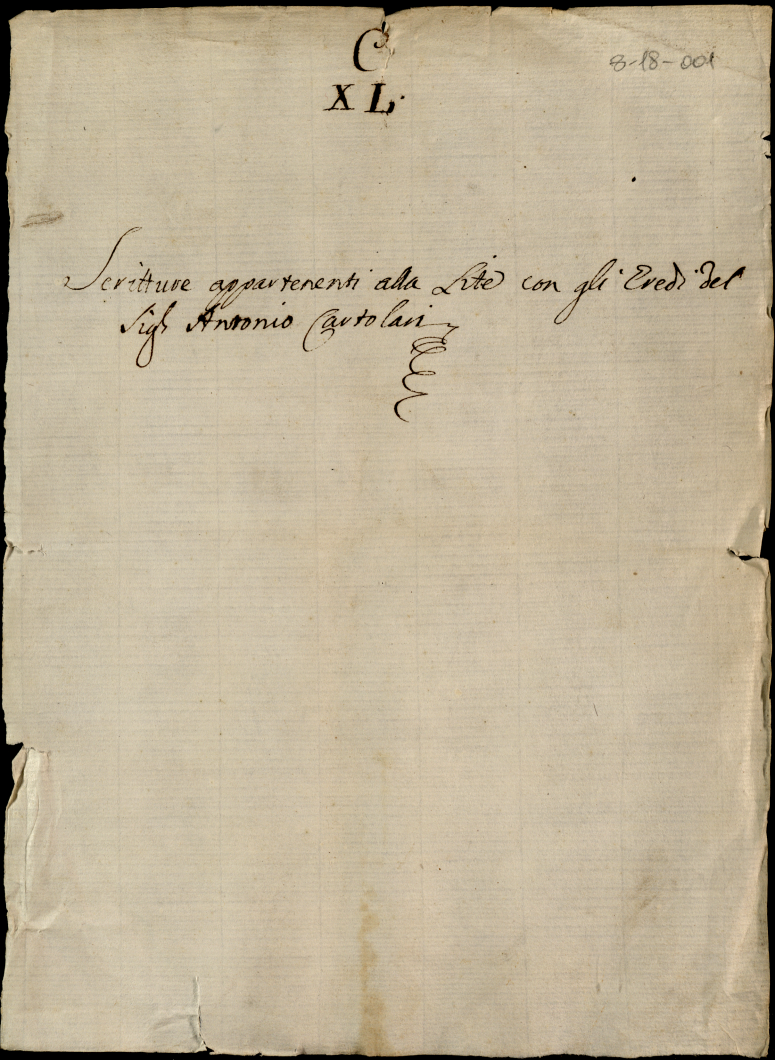 C
XL.
8-18-001
Scritture appartenenti alla Lite con gli Eredi del
Sigr Antonio Cartolari